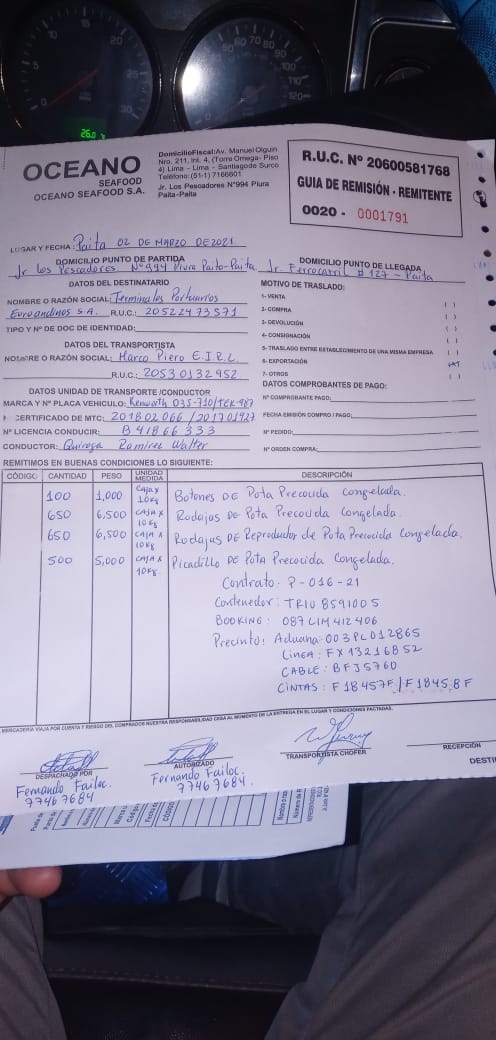 OCEANO
SEAFOOD
OCEANO SEAFOOD S.A.
Domicilio Fiscal: Av. Manuel Olguin
Nro. 211, Int. 4, (Torre Omega- Piso
4) Lima - Lima - Santiagode Surco
Teléfono: (51-1) 7166601
Jr. Los Pescadores N°994 Piura
Paita-Paita
R.U.C. Nº 20600581768
GUIA DE REMISIÓN - REMITENTE
0020 - 0001791
LUGAR Y FECHA: Paita 02 DE MARZO DE 2021
DOMICILIO PUNTO DE PARTIDA
Jr Los Pescadores Nº994 Piura Paita-Paita
DOMICILIO PUNTO DE LLEGADA
Jr. Ferrocarril # 127 - Paita
DATOS DEL DESTINATARIO
NOMBRE O RAZÓN SOCIAL: Terminales Portuarios
Euroandinos S.A. R.U.C.: 20522473571
TIPO Y Nº DE DOC DE IDENTIDAD:
MOTIVO DE TRASLADO:
1- VENTA ( )
2- COMPRA ( )
3- DEVOLUCIÓN ( )
4- CONSIGNACIÓN ( )
5- TRASLADO ENTRE ESTABLECIMIENTO DE UNA MISMA EMPRESA ( )
6- EXPORTACIÓN
7- OTROS ( )
DATOS DEL TRANSPORTISTA
NOMBRE O RAZÓN SOCIAL: Marco Piero E.I.R.L.
R.U.C.: 20530132952
DATOS UNIDAD DE TRANSPORTE /CONDUCTOR
MARCA Y Nº PLACA VEHICULO: Kenworth
CERTIFICADO DE MTC: 201802066 /201701927
Nº LICENCIA CONDUCIR: B41866333
CONDUCTOR: Quiroga Ramirez Walter
DATOS COMPROBANTES DE PAGO:
Nº COMPROBANTE PAGO:
FECHA EMISIÓN COMPRO / PAGO:
Nº PEDIDO:
Nº ORDEN COMPRA:
REMITIMOS EN BUENAS CONDICIONES LO SIGUIENTE:
CÓDIGO CANTIDAD PESO UNIDAD MEDIDA DESCRIPCIÓN
100 1,000 CAJA X 10kg Botones DE Pota Precocida congelada.
650 6,500 CAJA X 10KG Rodajas DE Pota Precocida Congelada.
650 6,500 CAJA X 10KG Rodajas DE Reproductor de Pota Precocida Congelada.
500 5,000 CAJA X 10Kg. Picadillo DE Pota Precocida Congelada.
Contrato: P-016-21
Contenedor: TRIU 8591005
BOOKING: 087LIM412406
Precinto: Aduana: 003PL012865
Linea: FX13216852
CABLE: BFJ5760
CINTAS: F18457F/F18458F
MERCADERÍA VIAJA POR CUENTA Y RIESGO DEL COMPRADOS NUESTRA RESPONSABILIDAD CESA AL MOMENTO DE LA ENTREGA EN EL LUGAR Y CONDICIONES PACTADAS.
DESPACHADO POR
Fernando Failoc.
77467684
AUTORIZADO
Fernando Failoc.
77467684.
TRANSPORTISTA CHOFER
RECEPCIÓN
DESTI